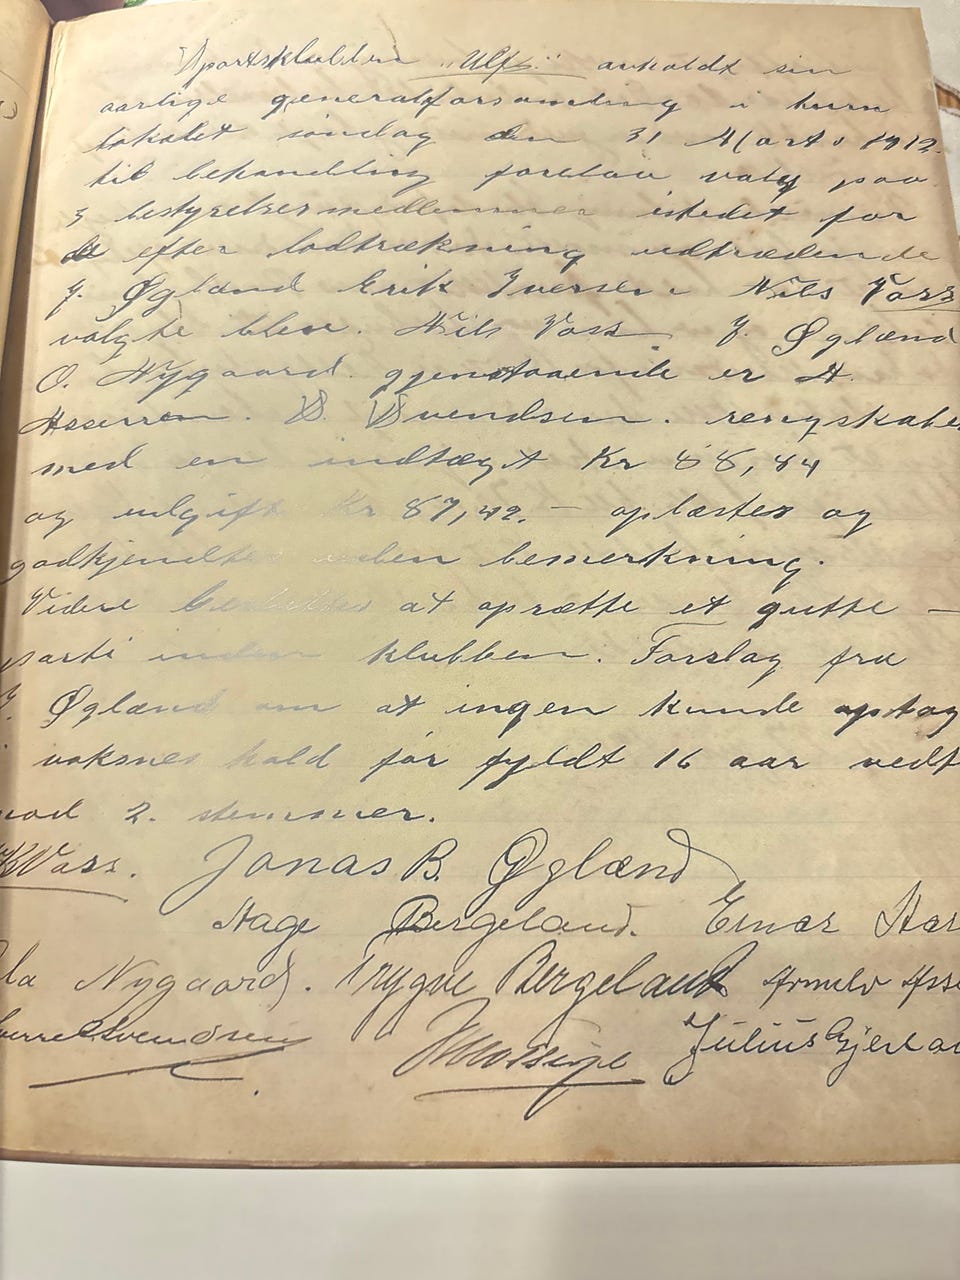 Sportsklubben "Ulf" avholdt sin
aarlige generalforsamling i
lokalet søndag den 31 Marts 1912.
til behandling forelaa valg paa
3 bestyrelsesmedlemmer istedet for
de efter lodtrækning udtrædende
J. Øglænd Erik Iversen. Nils Voss
valgte blev. Nils Voss. J. Øglænd
O. Nygaard. gjenstaaende er A.
Asserson. S. Svendsen. rengskabe
med en indtægt Kr 88,84
og udgift Kr 87,42. – oplæstes og
godkjendtes uden bemerkning.
Videre besluttes at oprætte et gutte –
parti inden klubben. Forslag fra
J. Øglænd om at ingen kunde optag
voksnes hold før fyldt 16 aar vedt
mod 2. stemmer.
Voss. Jonas B. Øglænd
Aage Bergeland. Einar
Nygaard. Trygve Bergeland
Svendsen Julius Gjerla